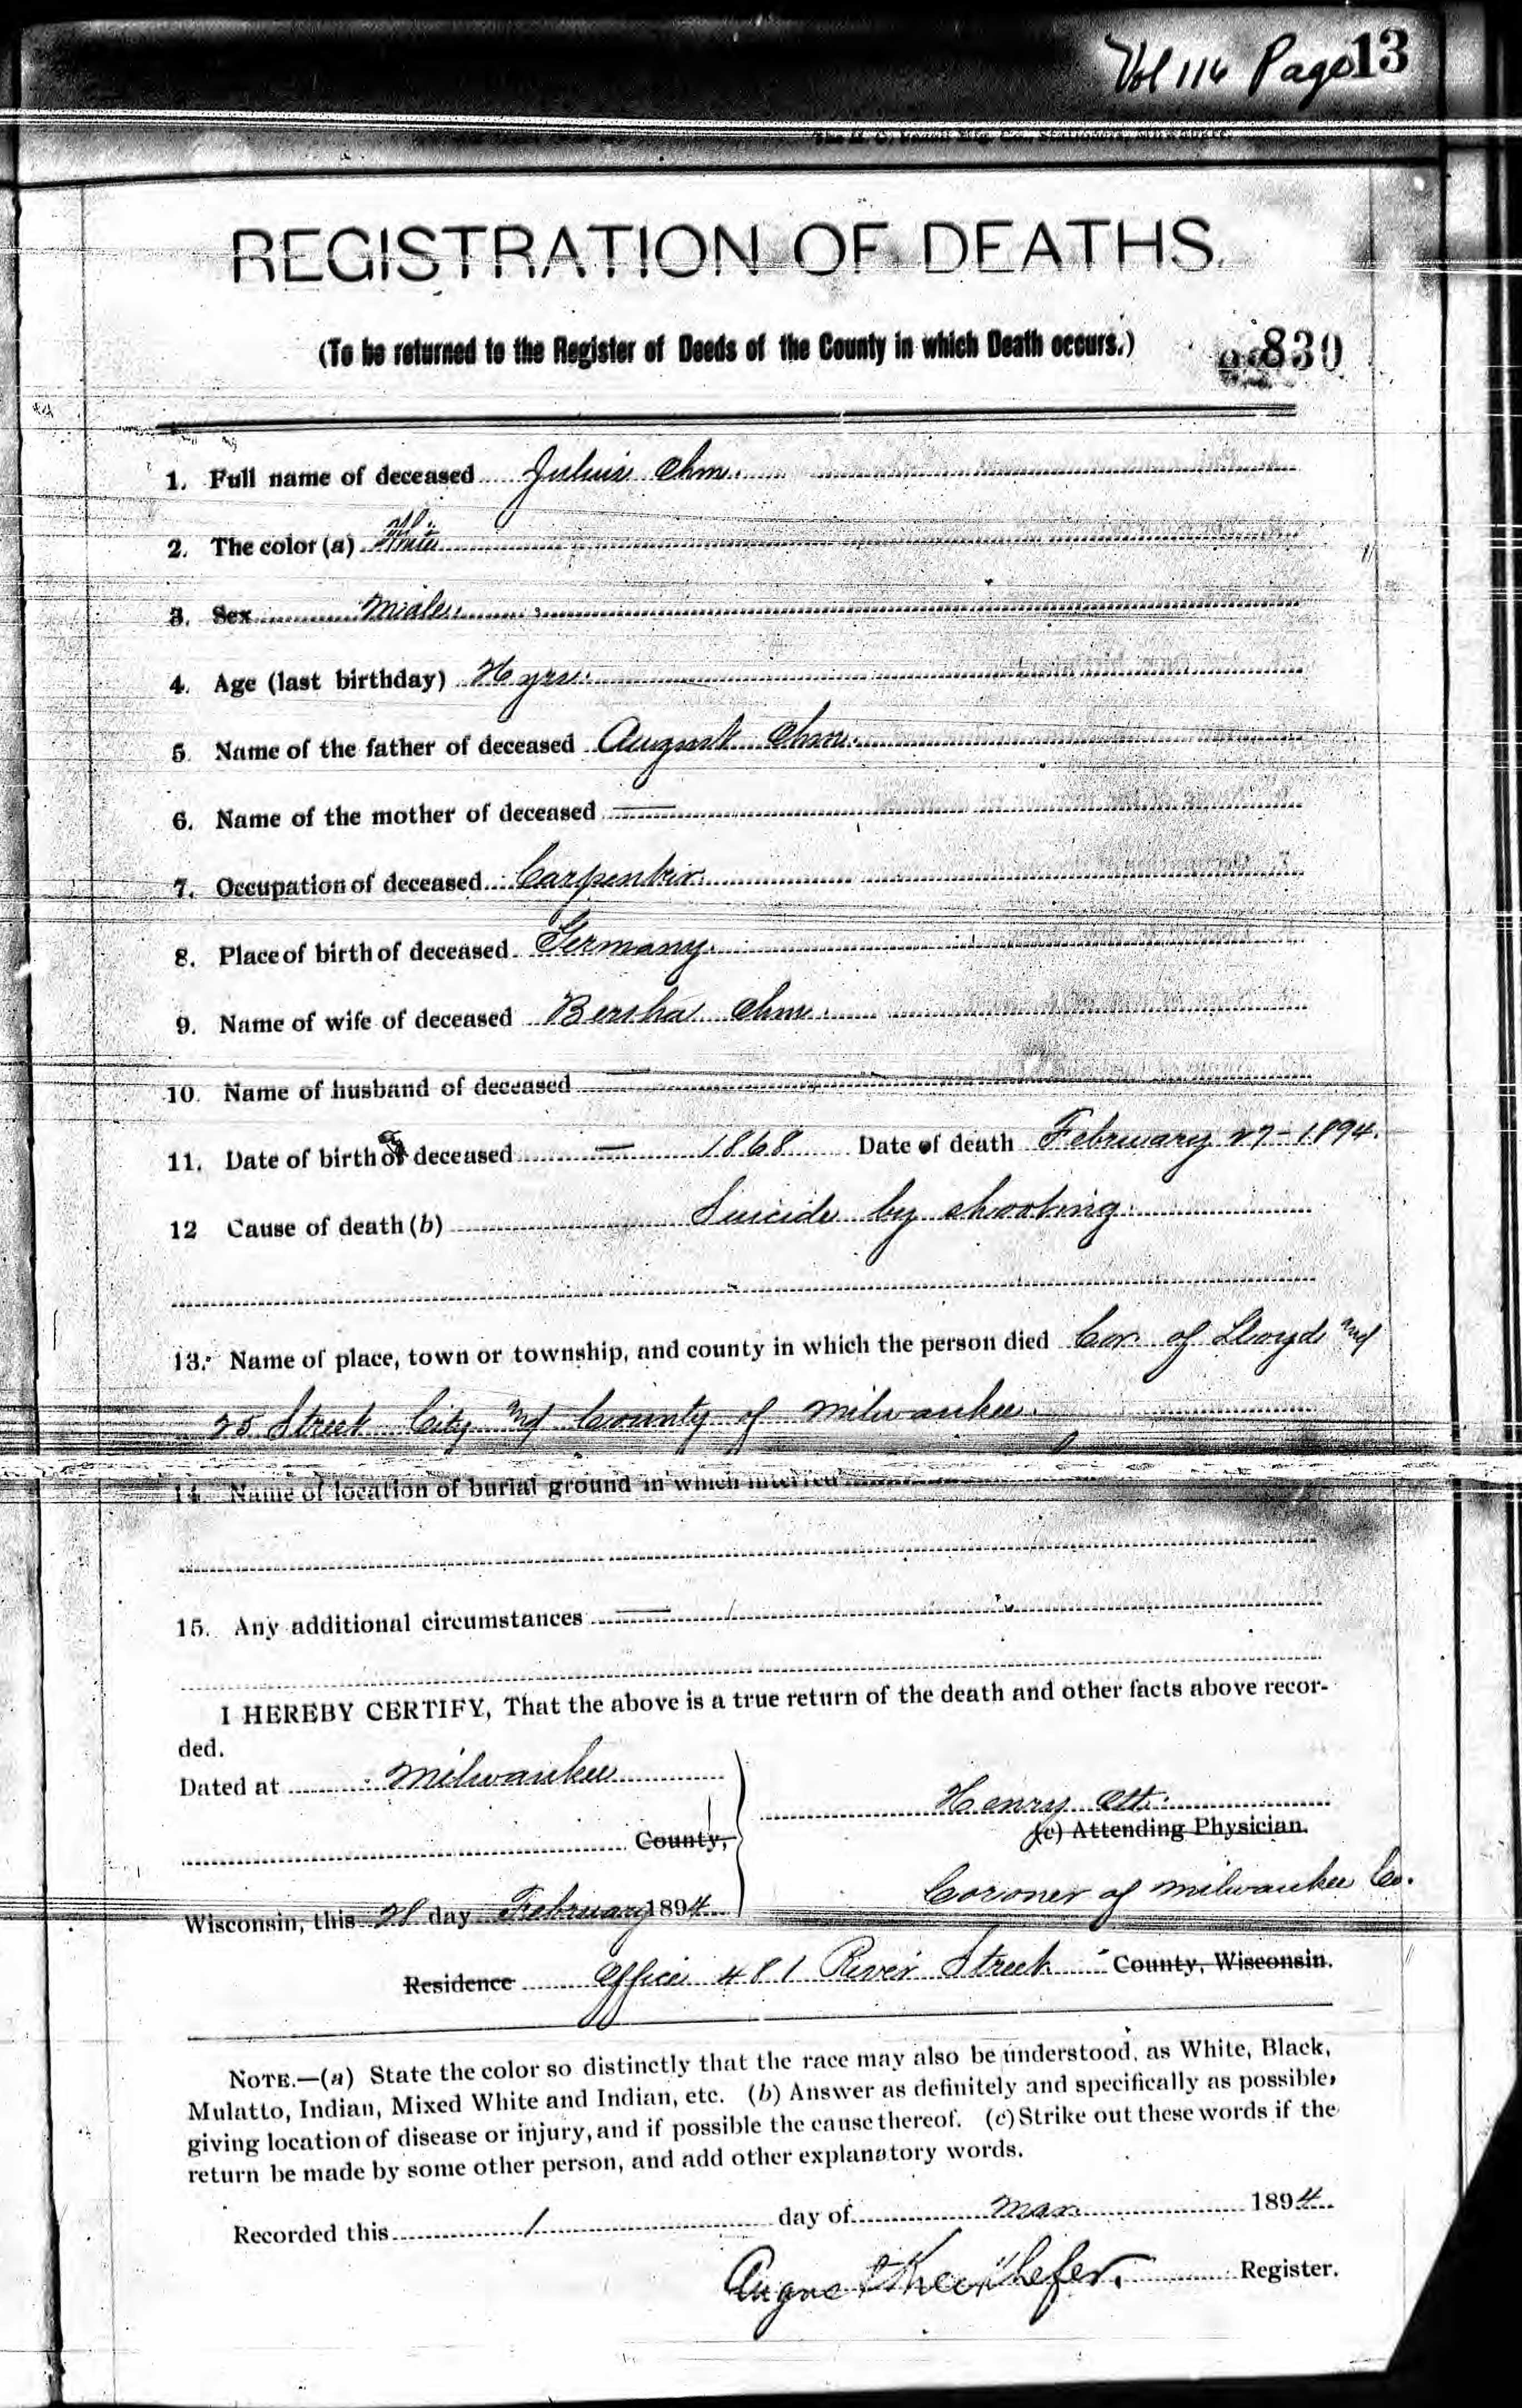 Vol 116 Page 13
REGISTRATION OF DEATHS.
(To be returned to the Register of Deeds of the County in which Death occurs.) 830
1. Full name of deceased Julius Ohm.
2. The color (a) White
3. Sex Male
4. Age (last birthday) 26 yrs.
5. Name of the father of deceased August Ohm.
6. Name of the mother of deceased —
7. Occupation of deceased Carpenter.
8. Place of birth of deceased Germany.
9. Name of wife of deceased Bertha Ohm.
10. Name of husband of deceased —
11. Date of birth of deceased — 1868 Date of death February 27 - 1894.
12 Cause of death (b) Suicide by shooting.
13. Name of place, town or township, and county in which the person died Cor. of Lloyds and
25 Street City and County of Milwaukee.
14. Name of location of burial ground in which interred
15. Any additional circumstances —
I HEREBY CERTIFY, That the above is a true return of the death and other facts above recor-
ded.
Dated at Milwaukee
Henry Ott.
(c) Attending Physician.
County,
Coroner of Milwaukee Co.
Wisconsin, this 28 day February 1894
Residence Office 481 River Street County, Wisconsin.
NOTE.—(a) State the color so distinctly that the race may also be understood, as White, Black,
Mulatto, Indian, Mixed White and Indian, etc. (b) Answer as definitely and specifically as possible,
giving location of disease or injury, and if possible the cause thereof. (c) Strike out these words if the
return be made by some other person, and add other explanatory words.
Recorded this 1 day of Mar. 1894
August Rieckhefer. Register.